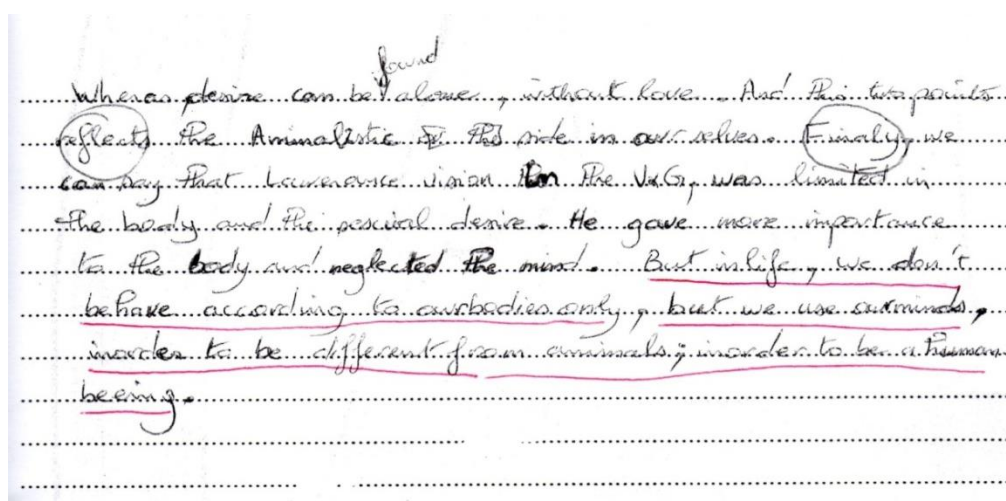 found
Wheras desire can be alone, without love. And this two points
reflects the Animalistic side in our selves. Finaly, we
can say that Lawerence vision in the V&G, was limited in
the body and the sexual desire. He gave more importance
to the body and neglected the mind. But in life, we don't
behave according to our bodies only, but we use our minds,
inorder to be different from animals; inorder to be a human
beeing.